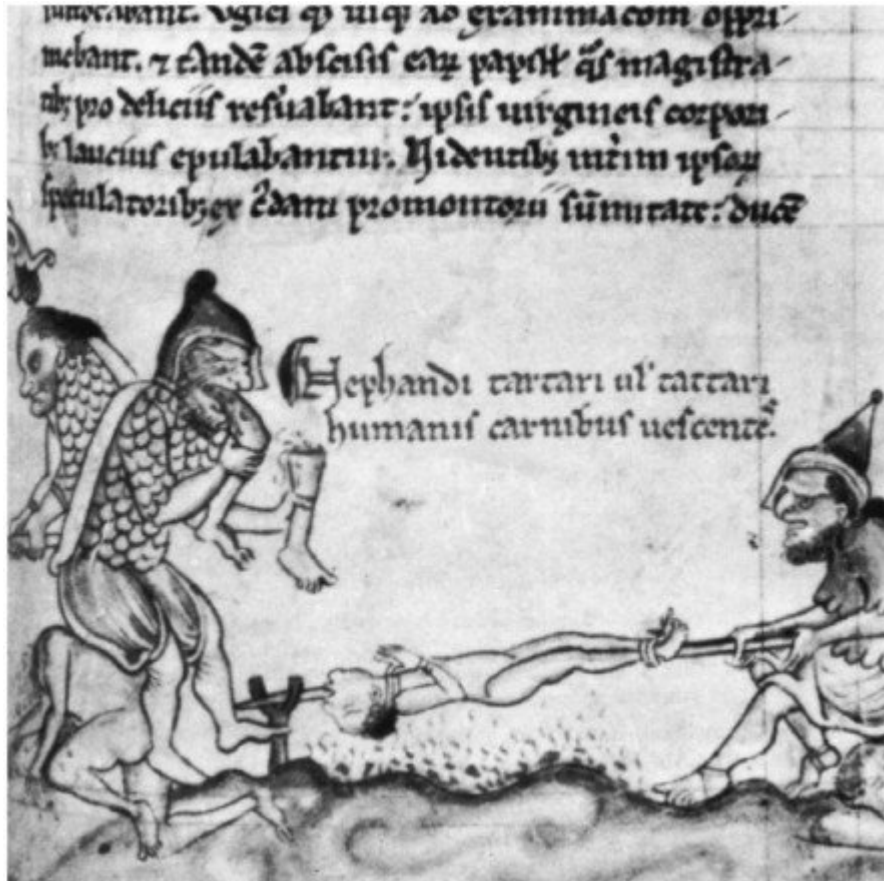 mebant. ⁊ tandē abscisis eaꝝ papill' q̄s magistra-
tibꝫ pro deliciis res'uabant: ipsis uirgineis corpori-
bꝫ laucius epulabantur. Uidentibꝫ int'im ipsoꝝ
speculatoribꝫ ex promontorii sūmitate: ducē
Nephandi tartari ul' tattari
humanis carnibus uescentes.